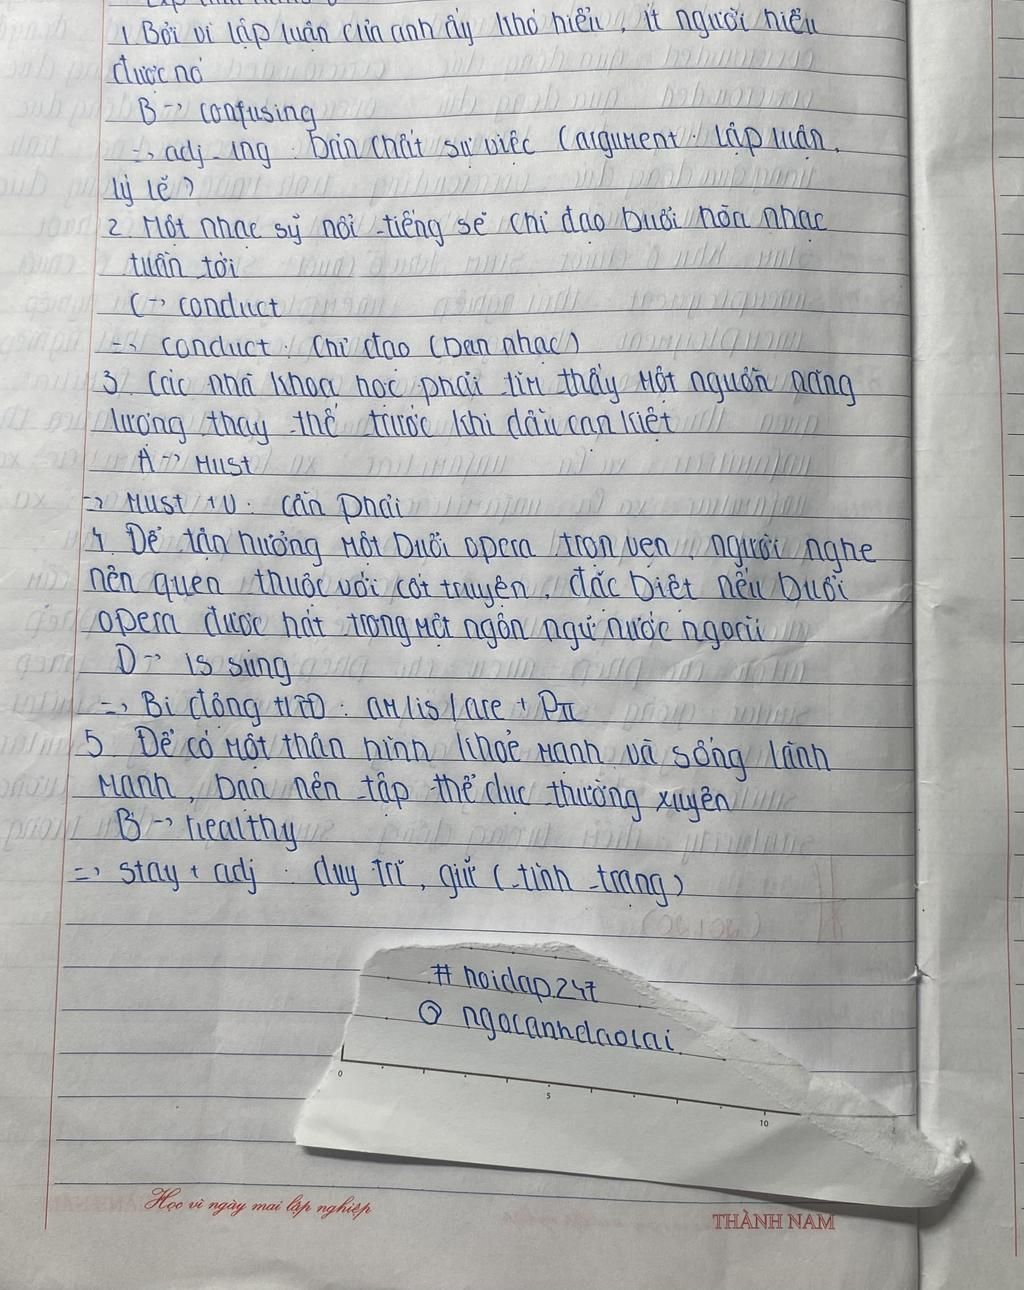 1. Bởi vì lập luận của anh ấy khó hiểu, ít người hiểu
được nó
B -> confusing
=> adj - ing : bản chất sự việc (argument : lập luận,
lý lẽ)
2. Một nhạc sỹ nổi tiếng sẽ chỉ đạo buổi hòa nhạc
tuần tới
C -> conduct
=> conduct : chỉ đạo (dàn nhạc)
3. Các nhà khoa học phải tìm thấy một nguồn năng
lượng thay thế trước khi dầu cạn kiệt
A -> Must
=> Must + V : cần phải
4. Để tận hưởng một buổi opera trọn vẹn, người nghe
nên quen thuộc với cốt truyện, đặc biệt nếu buổi
opera được hát trong một ngôn ngữ nước ngoài
D -> is sung
=> Bị động HTĐ : am/is/are + PII
5. Để có một thân hình khoẻ mạnh và sống lành
mạnh, bạn nên tập thể dục thường xuyên
B -> healthy
=> stay + adj : duy trì, giữ (tình trạng)
# hoidap247
@ ngocanhdaocai
0 5 10
Học vì ngày mai lập nghiệp
THÀNH NAM